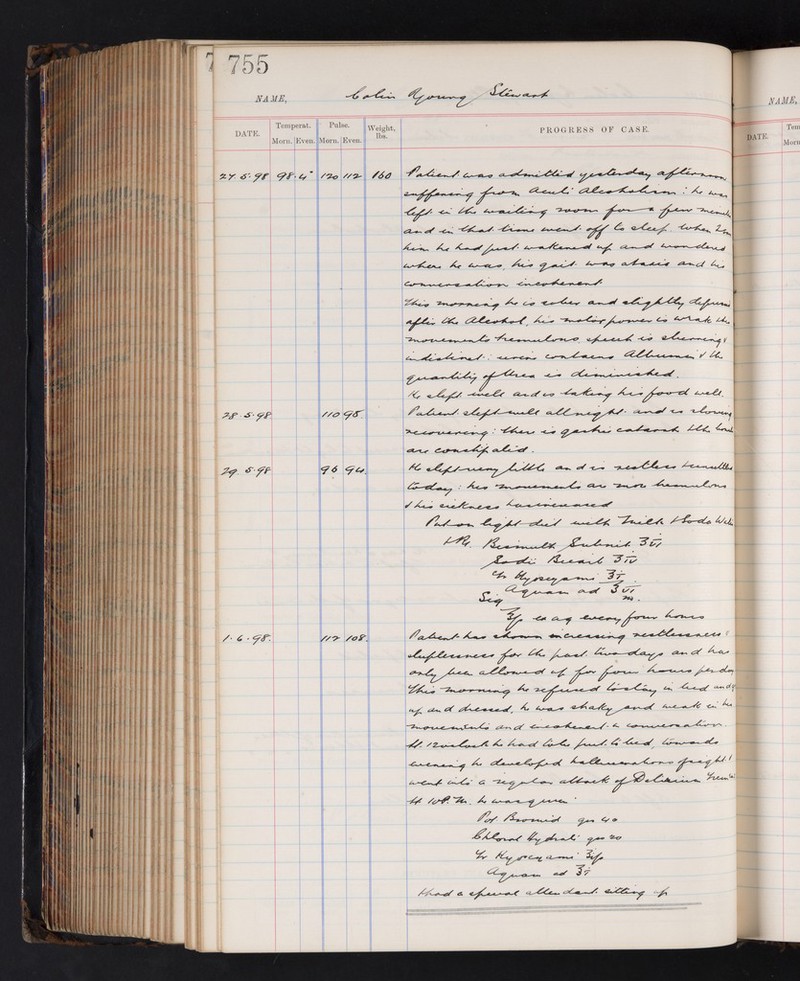 7 755
NAME, Colin Young Stewart
DATE. Temperat. Pulse. Weight, lbs. PROGRESS OF CASE.
Morn. Even. Morn. Even.
27.5.98 98.4° 120 112 160 Patient was admitted yesterday afternoon
suffering from acute alcoholism: he was
left in the waiting room for a few
and in that time went off to sleep. When I
him he had just wakened up and wondered
where he was, his gait was ataxic and his
conversation incoherent
This morning he is sober and slightly
after the Alcohol, his motor power is weak
movements tremulous, speech is slurring
indistinct: urine contains Albumin & the
quantity of Urea is diminished.
He slept well and is taking his food well.
28.5.98 110 98 Patient slept well all night and is
recovering: there is gastric catarrh & the
are constipated.
29.5.98 96 94 He slept very little and is restless
today: his movements are more tremulous
& his sickness has increased
Put on light diet with Milk & Soda
& Rx. Bismuth Subnit ʒvi
Sodii Bicarb ʒiv
Tr Hyoscyami ℥i
Aquam ad ℥vi
Sig m.
℥ss ex aq every four hours
1.6.98. 112 108. Patient has shown increasing restlessness &
sleeplessness for the past two days and has
only been allowed up for four hours per day
This morning he refused to stay in bed and
up and dressed, he was shaky and weak in his
movements and incoherent in conversation
At 12 oclock he had to be put to bed, towards
evening he developed hallucinations of sight &
went into a regular attack of Delirium
At 10 P.M. he was given
Pot Bromid grs 40
Chloral Hydrati grs 20
Tr Hyoscyami ʒss
Aquam ad ℥i
& had a special attendant sitting up
NAME,
DATE.
Morn